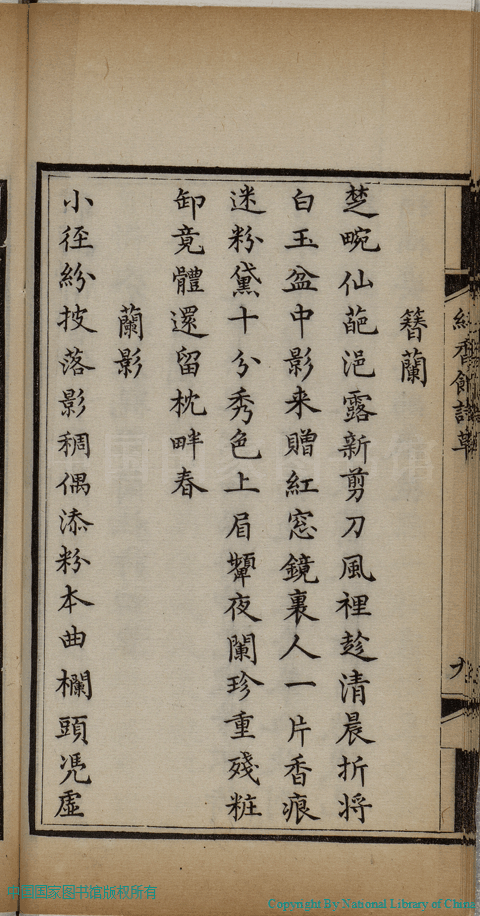 簪蘭
楚畹仙葩浥露新剪刀風裡趁清晨折將
白玉盆中影來贈紅窓鏡裏人一片香痕
迷粉黛十分秀色上眉顰夜闌珍重殘粧
卸竟體還留枕畔春
蘭影
小徑紛披落影稠偶添粉本曲欄頭凴虛
香館詩草
中国国家图书馆版权所有
Copyright By National Library of China